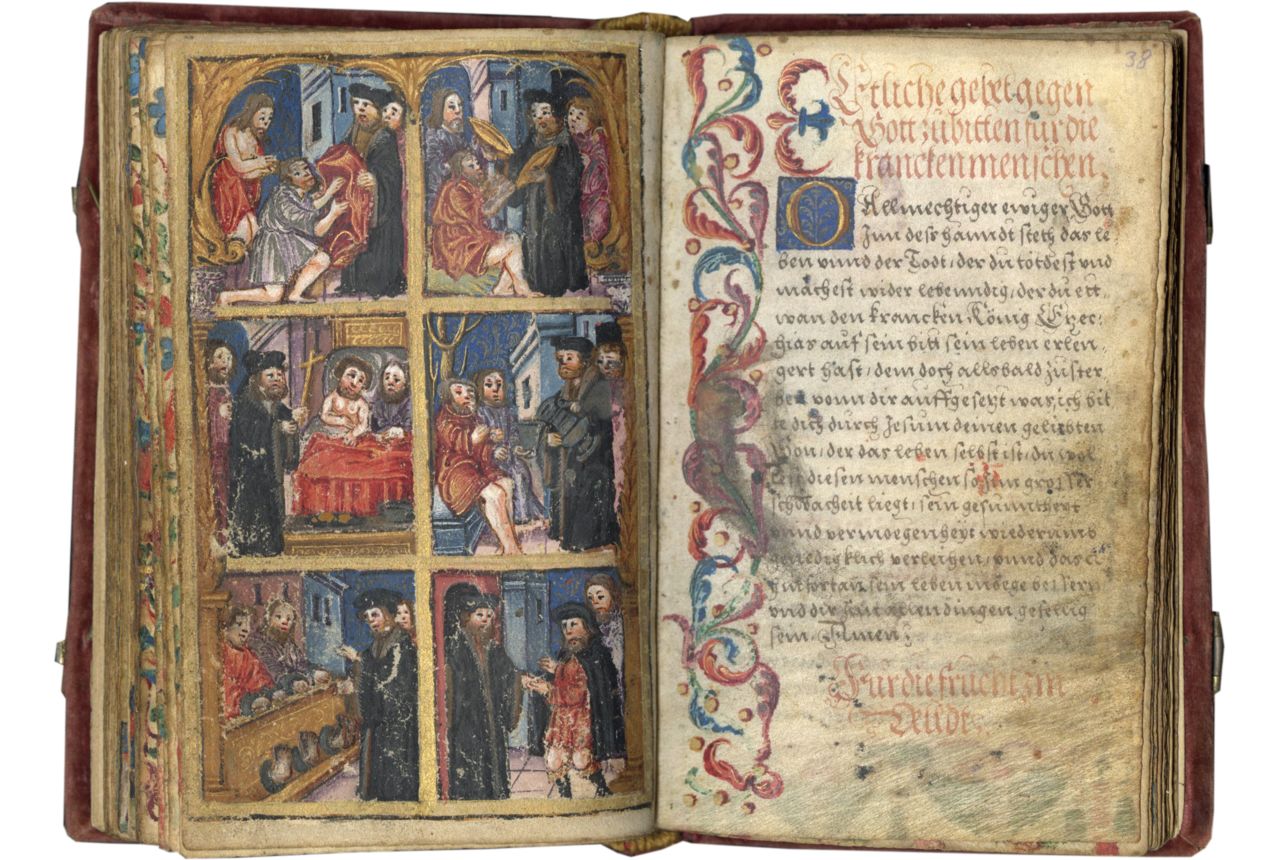 38
Etliche gebet gegen
Gott zubitten fur die
krancken menschen.
O Allmechtiger ewiger Gott
Inn des handt steth das le
ben vnnd der Todt, der du tötdest vnd
machest wider lebenndig, der du ett,
wan den krancken König Ezec,
hias auf sein bitt sein leben erlen,
gert hast, dem doch allsbald zuster
ben vonn dir auffgesetzt war, ich bit
te dich durch Jesum deinen geliebten
Son, der das leben selbst ist, du wol
lest diesen menschen so in grosser
schwacheit liegt, sein gesuntheyt
vnnd vermoegenheyt wiederumb
genedigklich verleihen, vnnd das Er
hinfortan sein leben möge bessern
vnd dir inn allen dingen gefellig
sein. Amen:
Fur die frucht im
Veldt.